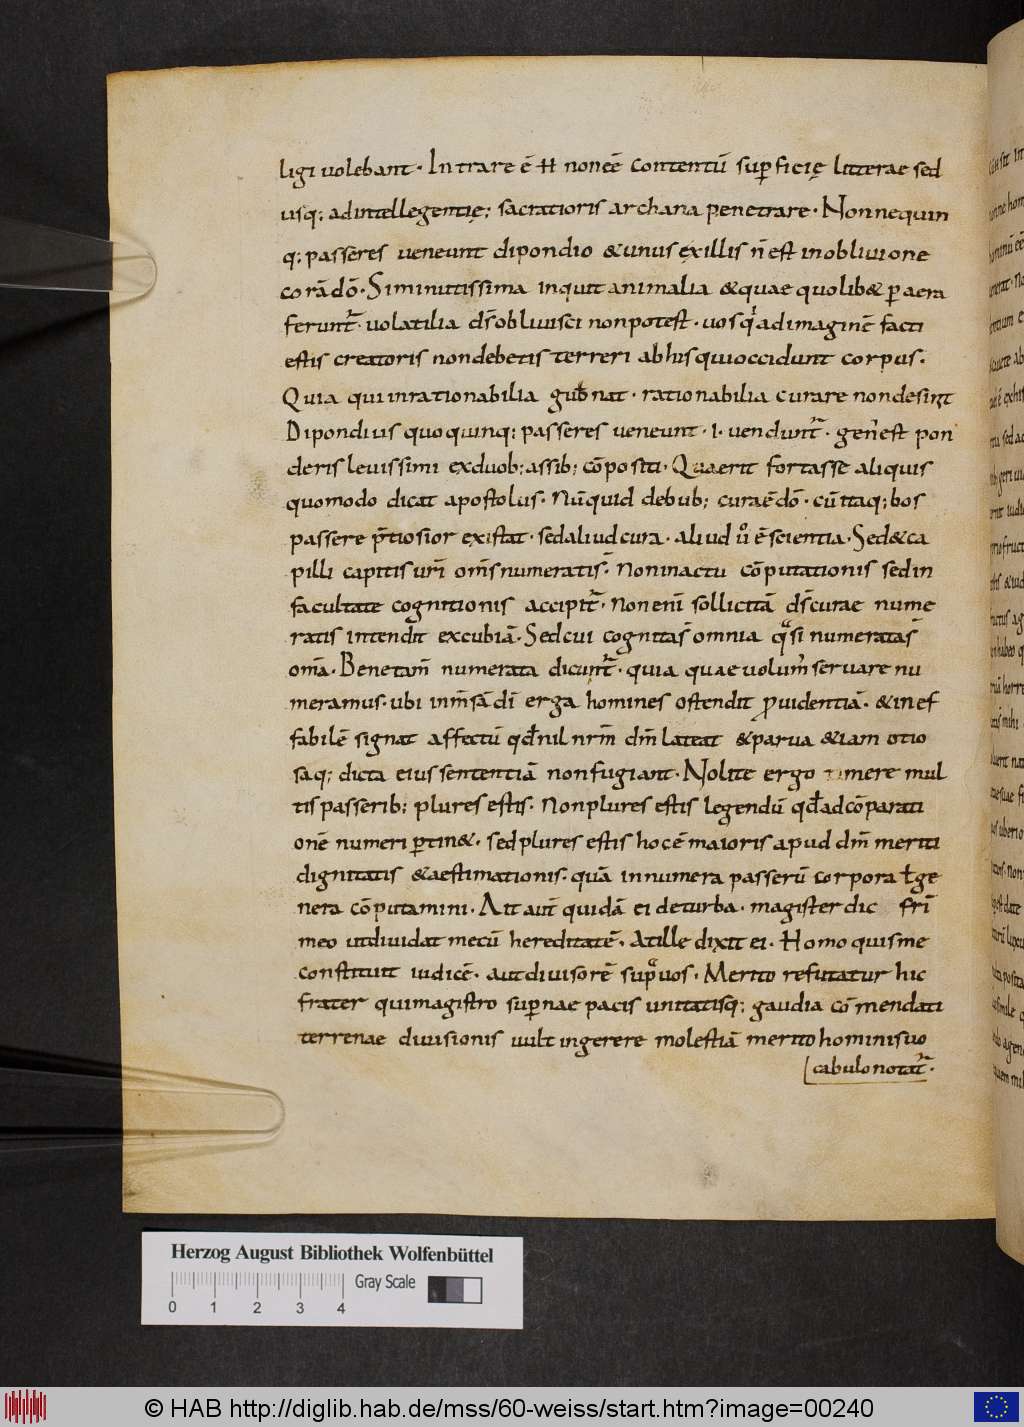 ligi volebant · Intrare ē H nonēē contentū sup̱ficię litterae sed
usq; adintellegentię; sacratioris archana penetrare · Nonnequin
q; passeres veneunt dipondio &unus exillis n̄ est inoblivione
corādō · Siminutissima inquit animalia &quae quolib& p̱ aera
ferunt᷑ · volatilia d̄s oblivisci nonpotest · vos qͥ adimaginē facti
estis creatoris nondebetis terreri abhis quioccidunt corpus ·
Quia quiinrationabilia gub̄nat · rationabilia curare nondesinit
Dipondius quoq uinq; passeres veneunt · i · vendunt᷑ · gen̄ est pon
deris levissimi exduob; assib; cōpositi · Quaerit fortasse aliquis
quomodo dicat apostolus · Nūquid debub; curaēdō · cūitaq; bos
passere p̄tiosior existat · sedaliud cura · aliud ů ēscientia · Sed&ca
pilli capitis ur̄i om̄s numeratis᷑ · Noninactu cōputationis sedin
facultate cognitionis accipit᷑ · Non eni̅ sollicitā d̄s curae nume
ratis intendit excubiā · Sedcui cognitas̄ omnia qͣsi numeratas̄
om̄a · Benetam̄ numerata dicunt᷑ · quia quae volum̄ servare nu
meramus · ubi inm̄sā d̄i erga homines ostendit p̱videntiā · &inef
fabilē signat affectū qd̄ nil nr̄m dm̄ lateat &parva &iam otio
saq; dicta eius sententiā nonfugiant · Nolite ergo timere mul
tis passerib; plures estis · Nonplures estis legendū qd̄ adcōparati
onē numeri p̱tin& · sedplures estis hocē maioris apud dm̄ meriti
dignitatis &aestimationis · quā innumera passerū corpora ł ge
nera cōputamini · Ait aut̄ quidā ei deturba · magister dic fr̄i
meo utdividat mecū hereditatē · Atille dixit ei · Homo quis me
constituit iudicē · autdivisorē sup̱ vos · Merito refutatur hic
frater quimagistro sup̱nae pacis unitatisq; gaudia cō mendati
terrenae divisionis vult ingerere molestiā merito hominisvo
cabulo notat᷑ ·
Herzog August Bibliothek Wolfenbüttel
Gray Scale
0 1 2 3 4
© HAB http://diglib.hab.de/mss/60-weiss/start.htm?image=00240